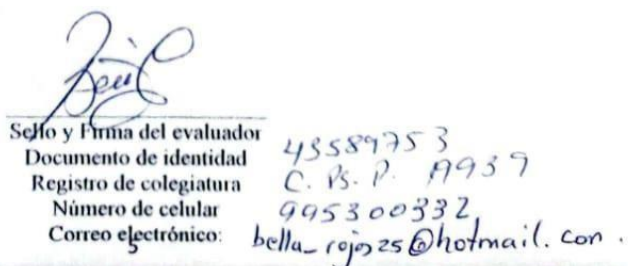 Sello y Firma del evaluador
Documento de identidad 43589753
Registro de colegiatura C. Ps. P. A939
Número de celular 995300332
Correo electrónico: bella_rojas25@hotmail.con.